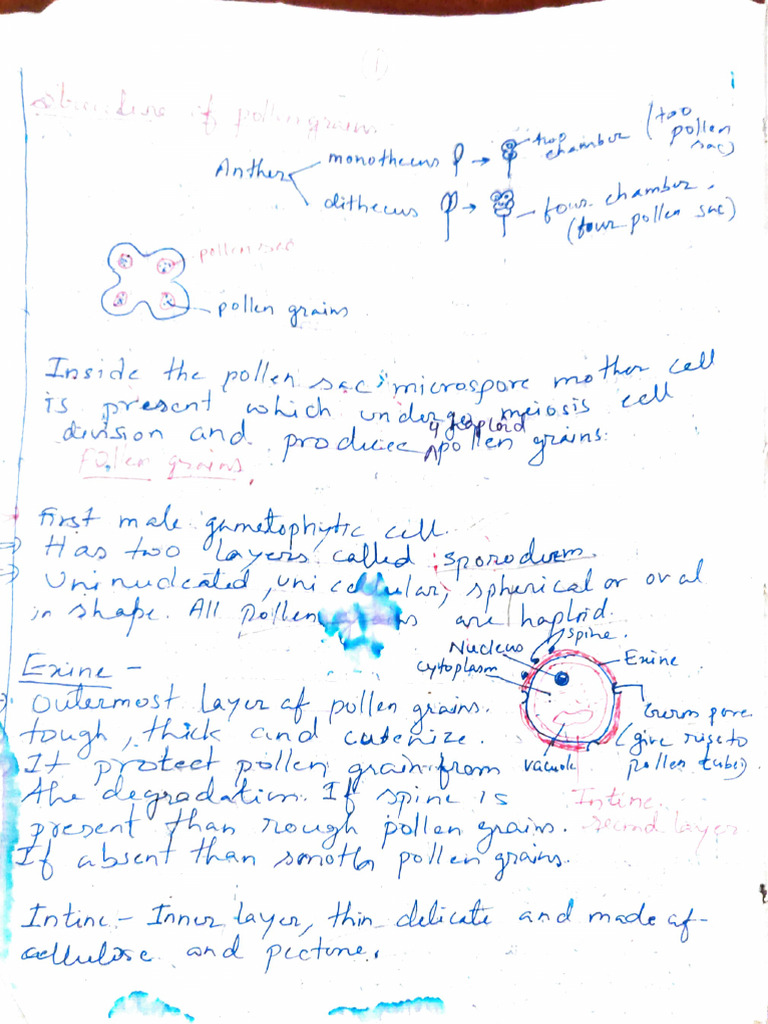 (1)
Structure of pollengrains
Anther
monothecus → two chamber (too pollen sac)
dithecus → four chamber. (four pollen sac)
pollen sac
pollen grains
Inside the pollen sac, microspore mother cell
is present which undergo meiosis cell
division and produce 4 haploid pollen grains.
Pollen grains.
First male gametophytic cell.
Has two layers called sporoderm.
Uninucleated, unicellular, spherical or oval
in shape. All pollen are haploid.
Nucleus
spine.
cytoplasm
Exine
Germ pore
(give rise to
pollen tube).
vacuole
Intine
second layer
Exine -
Outermost layer of pollen grains.
tough, thick and cutenize.
It protect pollen grain from
the degradation. If spine is
present than rough pollen grains.
If absent than smoth pollen grains.
Intine - Inner layer, thin delicate and made of
cellulose and pectone.